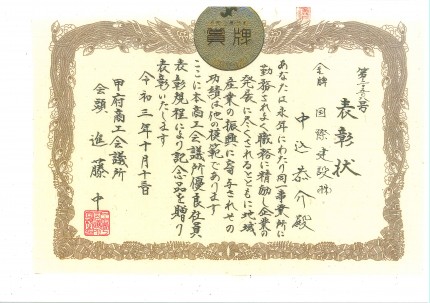 賞牌
表彰状
金牌 国際建設(株)
中込恭介殿
あなたは永年にわたり同一事業所に
勤務されよく職務に精励し企業の
発展に尽くされるとともに地域
産業の振興に寄与されその
功績は他の模範であります
ここに本商工会議所優良社員
表彰規程により記念品を贈り
表彰いたします
令和三年十月十三日
甲府商工会議所
会頭 進藤中